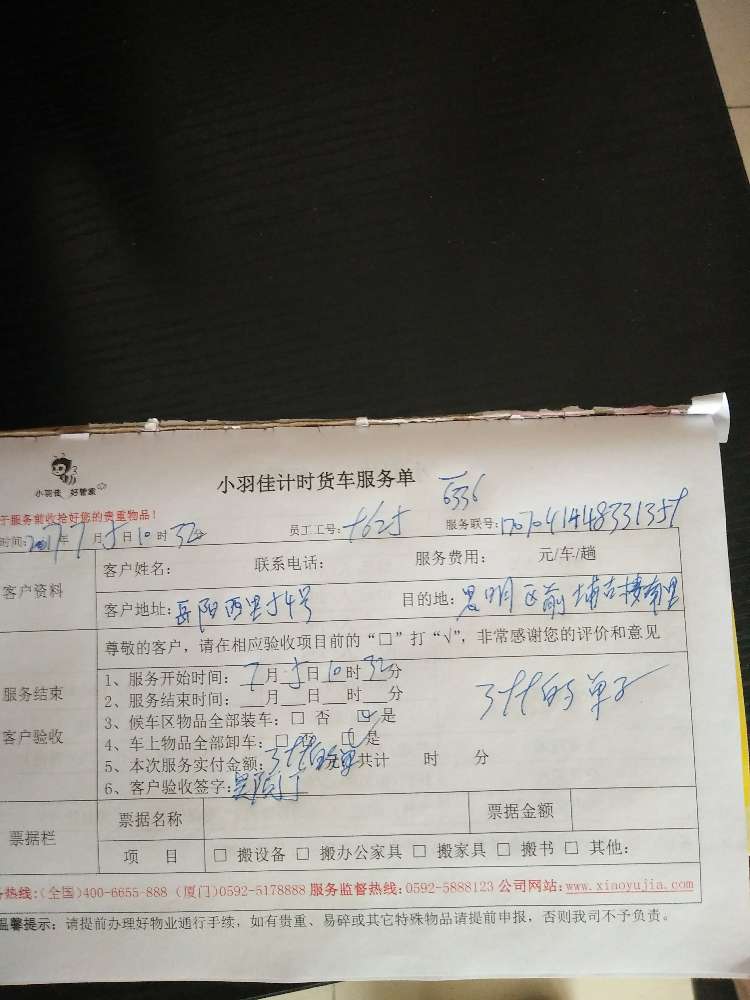 小羽佳 好管家
小羽佳计时货车服务单
6336
于服务前收拾好您的贵重物品!
时间:2017年7月5日10时32分 员工工号: 服务联号:
客户资料
客户姓名: 联系电话: 服务费用: 元/车/趟
客户地址:岳阳西里54号 目的地:思明区前埔古楼南里
服务结束
客户验收
尊敬的客户,请在相应验收项目前的“□”打“√”,非常感谢您的评价和意见
1、服务开始时间:7月5日10时32分
2、服务结束时间:__月__日__时__分
3、候车区物品全部装车:□ 否 ☑是
4、车上物品全部卸车:□ 否 ☑是
的单子
5、本次服务实付金额:的单 共计 时 分
6、客户验收签字:
票据栏
票据名称 票据金额
项 目 □ 搬设备 □ 搬办公家具 □ 搬家具 □ 搬书 □ 其他:
务热线:(全国)400-6655-888 (厦门)0592-5178888 服务监督热线:0592-5888123 公司网站:www.xiaoyujia.com
温馨提示:请提前办理好物业通行手续,如有贵重、易碎或其它特殊物品请提前申报,否则我司不予负责。